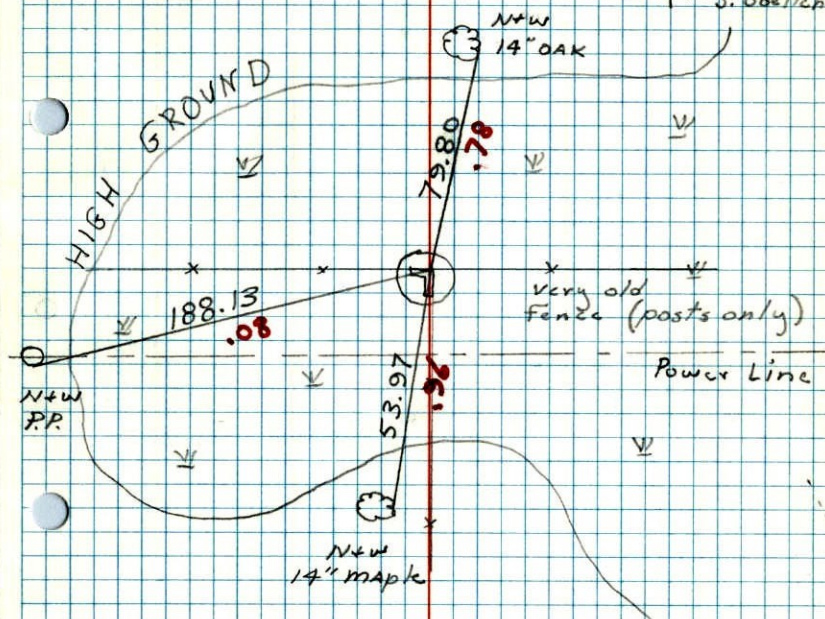 N+W
14" OAK
HIGH GROUND
79.80
.78
188.13
.08
very old
fence (posts only)
53.97
.96
Power Line
N+W
P.P.
N+W
14" maple